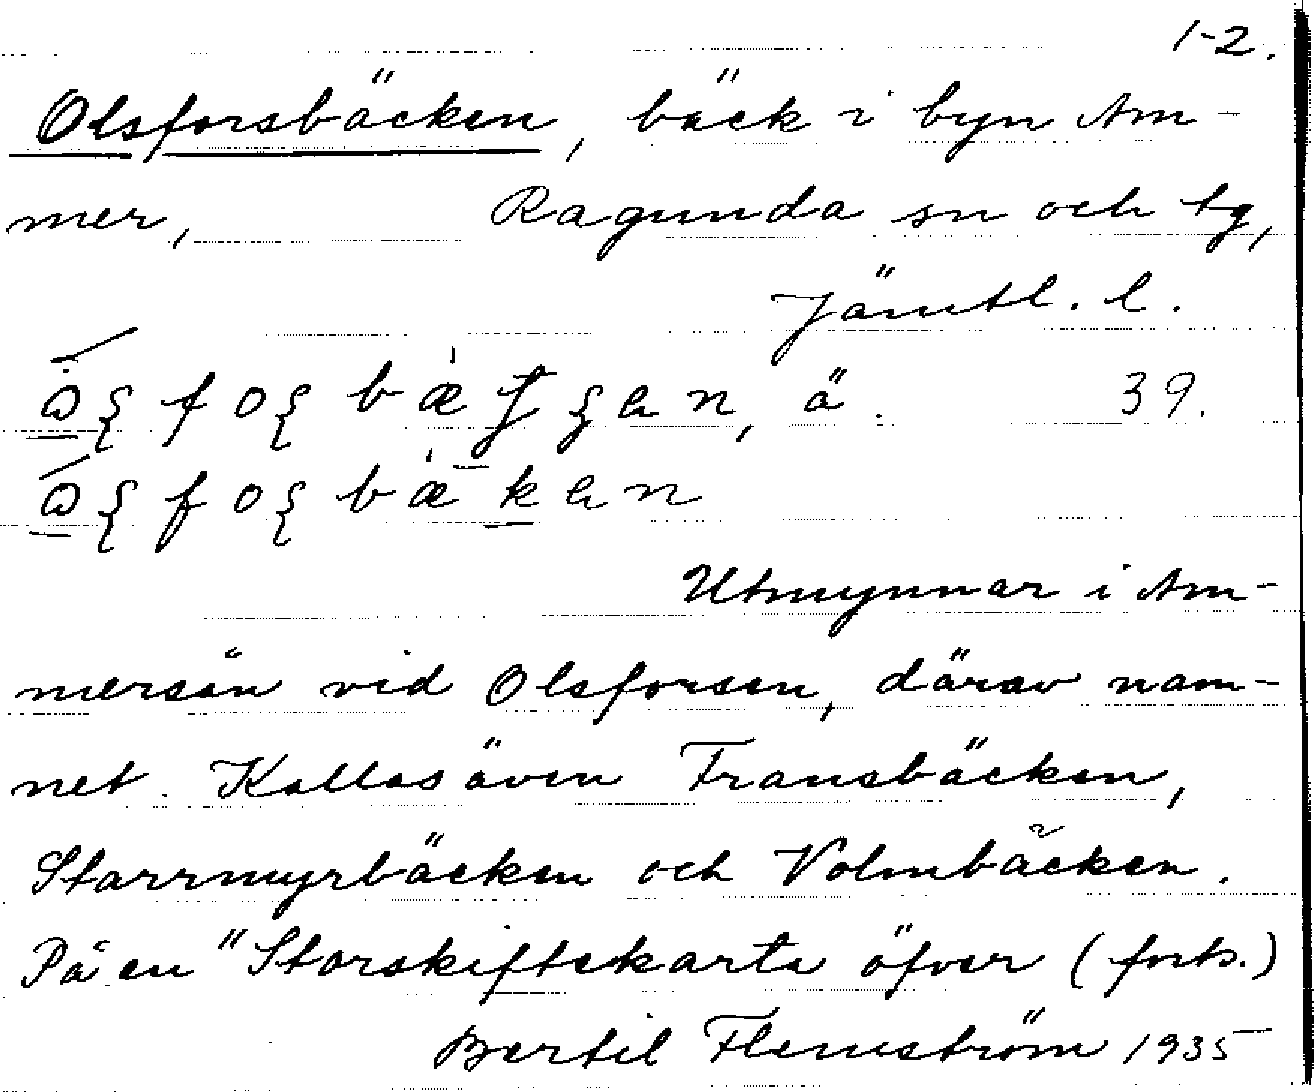 1-2.
Olsforsbäcken, bäck i byn Am-
mer, Ragunda sn och tg,
Jämtl. l.
ä. 39.
Utmynnar i Am-
mersån vid Olsforsen, därav nam-
net. Kallas även Fransbäcken,
Starrmyrbäcken och Volmbäcken.
På en "Storskifteskarta öfver (forts.)
Bertil Flemström 1935